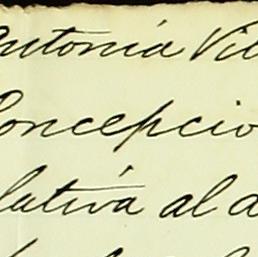 Antonia Vil
Concepcio
lativa al a